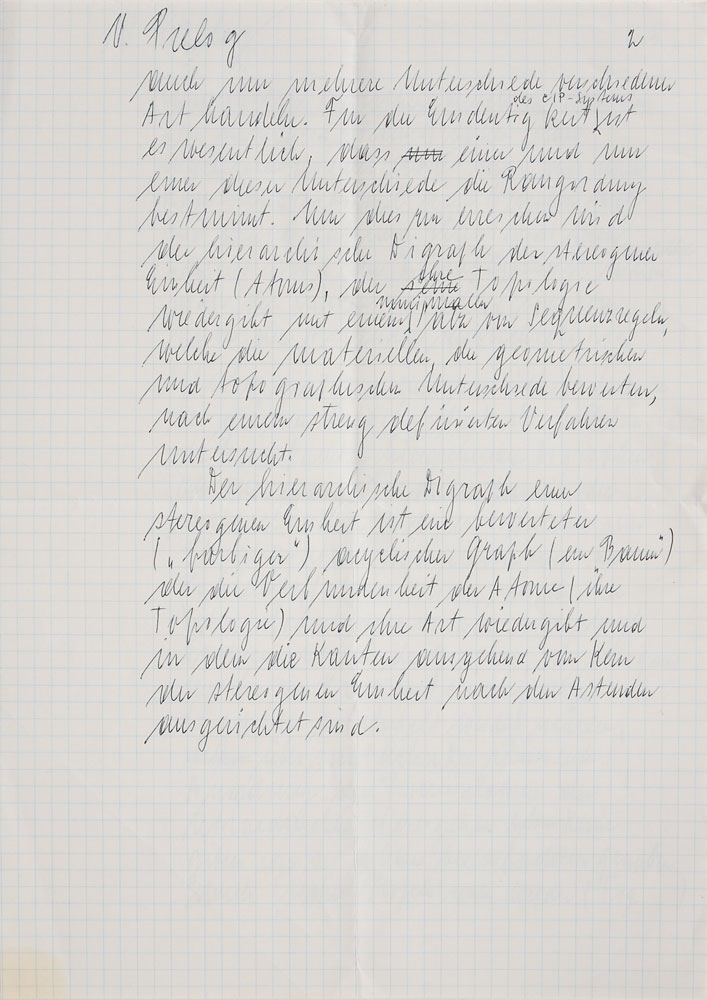 V. Prelog 2
auch um mehrere Unterschiede verschiedener
Art handeln. Für die Eindeutigkeit des CIP-Systems ist
es wesentlich, dass einer und nur
einer dieser Unterschiede die Rangordnung
bestimmt. Um dies zu erreichen wird
der hierarchische Digraph der stereogenen
Einheit (Atoms), der ihre Topologie
wiedergibt mit einem Satz von Sequenzregeln,
welche die materiellen, die geometrischen
und topographischen Unterschiede bewerten,
nach einem streng definierten Verfahren
untersucht.
Der hierarchische Digraph einer
stereogenen Einheit ist ein bewerteter
(„farbiger") acyclischer Graph (ein Baum)
der die Verbundenheit der Atome (ihre
Topologie) und ihre Art wiedergibt und
in dem die Kanten ausgehend vom Kern
der stereogenen Einheit nach den Astenden
ausgerichtet sind.